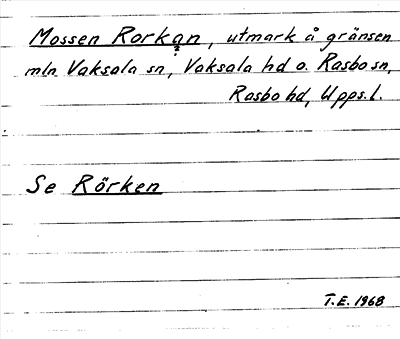 Mossen Rorkan, utmark å gränsen
mln Vaksala sn, Vaksala hd o. Rasbo sn,
Rasbo hd, Upps. l.
Se Rörken
T.E. 1968